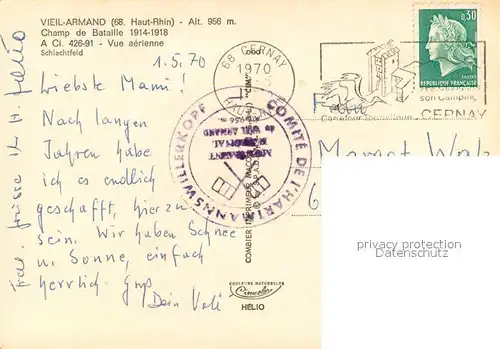 VIEIL-ARMAND (68. Haut-Rhin) - Alt. 956 m.
Champ de Bataille 1914-1918
A Ci. 426-91 - Vue aérienne
Schlachtfeld
1.5.70
Liebste Mami!
Nach langen
Jahren habe
ich es endlich
geschafft, hier zu
sein. Wir haben Schnee
u. Sonne, einfach
herrlich. Gruß
Dein
68 CERNAY
1970
HAUT-RHIN
0,30
REPUBLIQUE FRANÇAISE
son Camping
CERNAY
Carrefour Touristique
COMITÉ DE L'HARTMANNSWILLERKOPF
MONUMENT
NATIONAL
du VIEIL ARMAND
Alt. 956 m.
COMBIER IMPRIMEUR MACON
"CIM"
Frau
6
privacy protection
Datenschutz
COULEURS NATURELLES
Cimcolor
HÉLIO